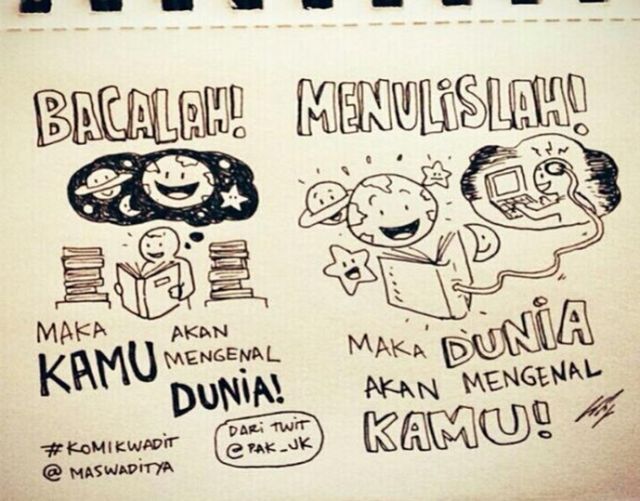 BACALAH!
MAKA AKAN
KAMU MENGENAL
DUNIA!
#KOMIKWADIT
@MASWADITYA
DARI TWIT
@PAK_JK
MENULISLAH!
MAKA DUNIA
AKAN MENGENAL
KAMU!